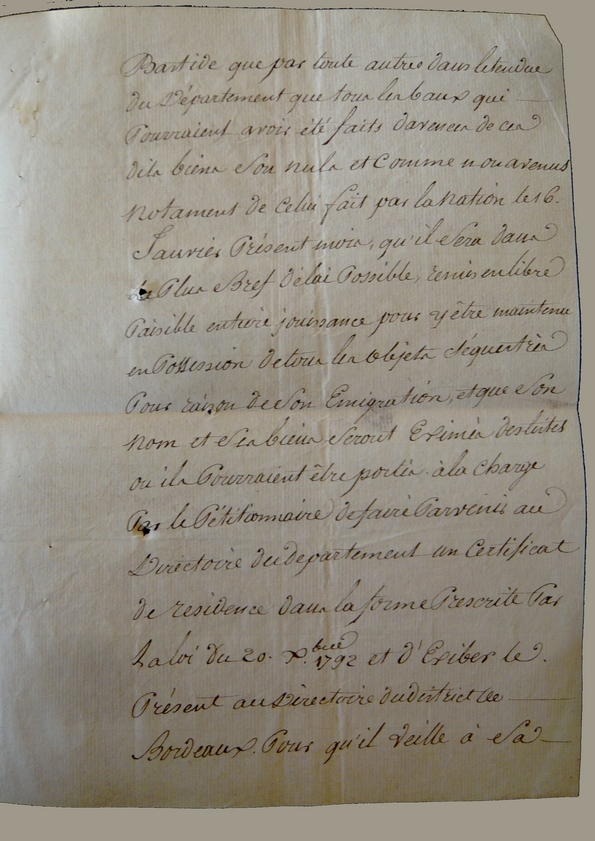 Bastide que par toute autres dans letendue
du Département que tous les baux qui
Pourraient avoir été faits davences de ces
dits biens Son nuls et Comme nou avenus
Notament de Celui fait par la Nation le 16.
Janvier Présent mois, qu'il Sera dans
le Plus Bref délai Possible, remis en libre
Paisible entiere jouissance pour y être maintenu
en Possession de tous les objets Séquestrés
Pour raizon de Son Emigration, et que Son
Nom et Ses biens Seront Eximés des listes
ou ils Pourraient être portés à la Charge
Par le Pétitionnaire de faire Parvenir au
Directoire du departement un Certificat
de residence dans la forme Prescrite Par
La loi du 20. X.bre 1792 et d'Exiber le
Présent au Directoire du district de
Bordeaux. Pour qu'il veille à Sa